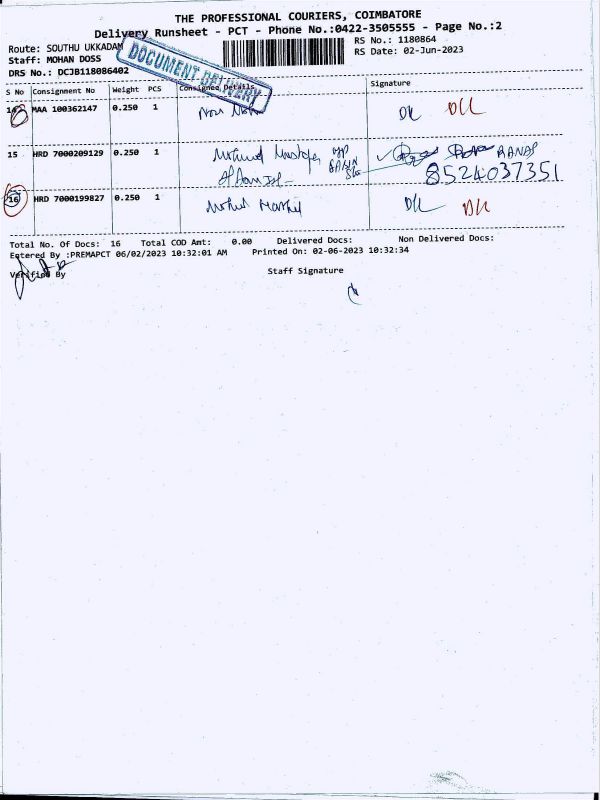 THE PROFESSIONAL COURIERS, COIMBATORE
Delivery Runsheet - PCT - Phone No.:0422-3505555 - Page No.:2
Route: SOUTHU UKKADAM
RS No.: 1180864
Staff: MOHAN DOSS
RS Date: 02-Jun-2023
DRS No.: DCJB118086402
DOCUMENT DELIVERY
S No Consignment No Weight PCS Consignee Details Signature
MAA 100362147 0.250 1
15 HRD 7000209129 0.250 1
8524037351
16 HRD 7000199827 0.250 1
Total No. Of Docs: 16 Total COD Amt: 0.00 Delivered Docs: Non Delivered Docs:
Entered By :PREMAPCT 06/02/2023 10:32:01 AM Printed On: 02-06-2023 10:32:34
Verified By Staff Signature